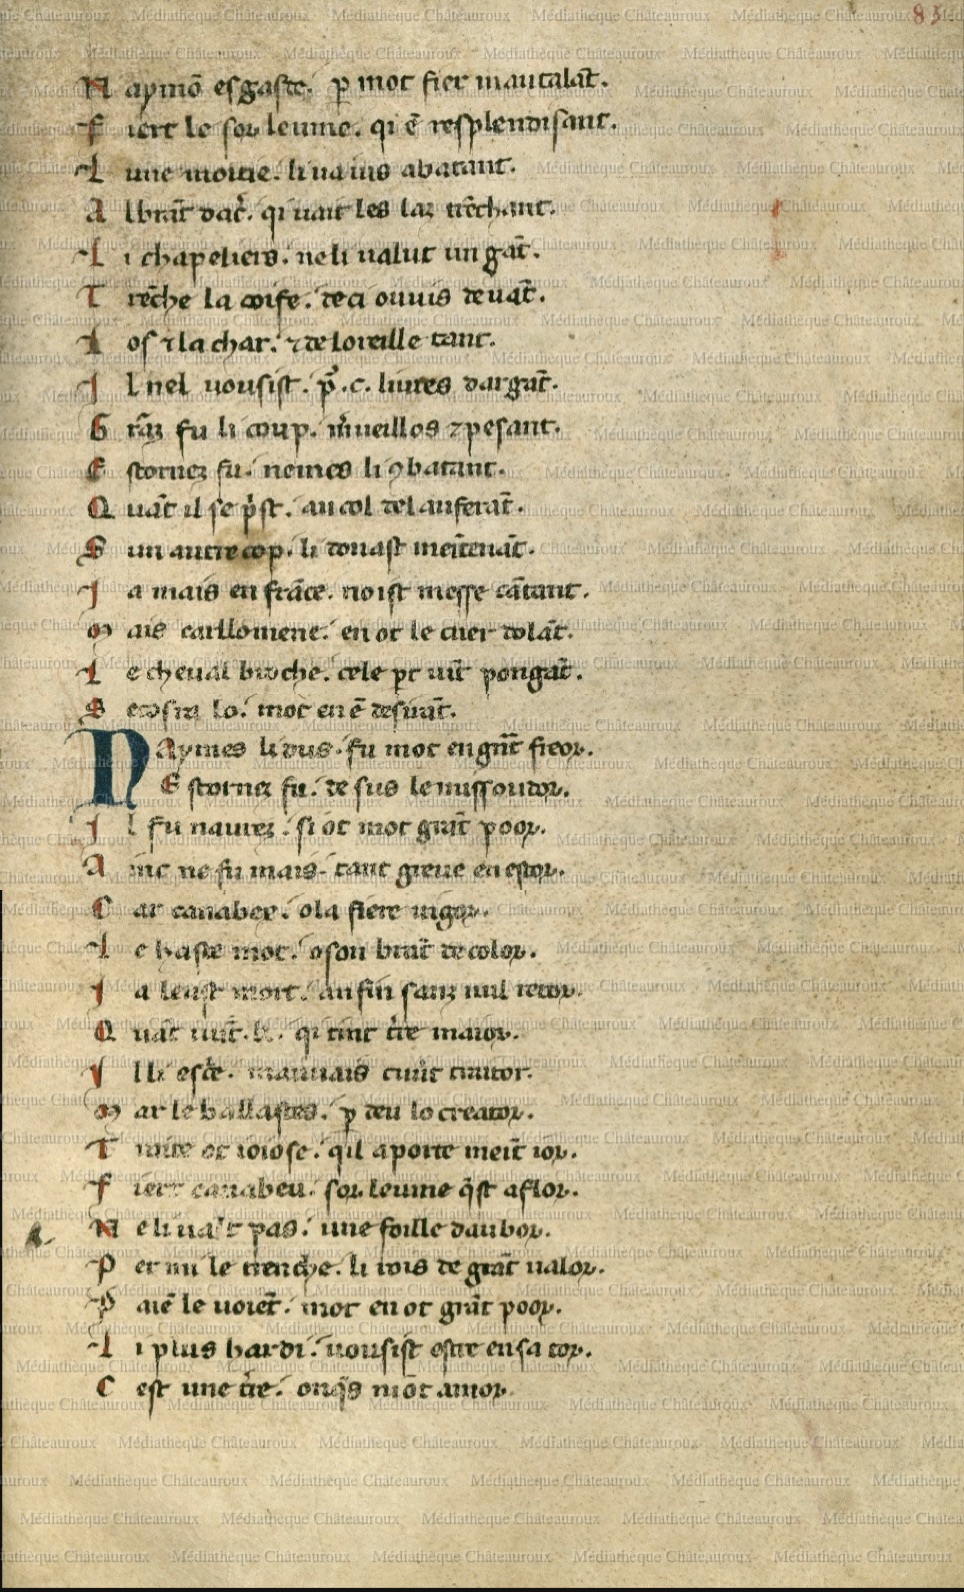 85
N aymō esgarde. p̱ mot fier mautalāt.
F iert le sor leume. qi ē resplendisant.
L une moitie. li ua ius abatant.
A l brāt dac̄. qi uait les laz trēchant.
L i chapeliers. ne li ualut un gāt.
T rēche la coife. deci ou uis deuāt.
L os ⁊ la char. ⁊ de loreille tant.
I l nel uousist. p̄ .c. liures dargāt.
G rāz fu li coup. m̄ueillos ⁊ pesant.
E stornez fu. neimes li ꝯbatant.
Q uāt il se p̄st. au col del auferāt.
S un autre cop. li donast meītenāt.
I a mais en frāce. noist messe cātant.
M ais carllomene. en ot le cuer dolāt.
L e cheual broche. cele part uīt pongāt.
S ecosre lo. mot en ē desirāt.
N Aymes li dus. fu mot en grāt freor.
E stornez fu. de sus le missoudor.
I l fu naurez. si ot mot grāt poor.
A inc ne fu mais. tant greue en estor.
C ar canabex. o la fiere uigor.
L e haste mot. o son brāt de color.
I a leust mort. an fin sanz nul retor.
Q uāt uīt. k. qi tint t̄re maior.
I l li esc̄e. mauuais cuu̅t traitor.
M ar le ballastes. p̱ deu lo creator.
T raite ot ioiose. qil aporte meīt ior.
F iert canabeu. sor leume q̄st a flor.
N e li ualt pas. une foille daubor.
P er mi le trenche. li rois de grāt ualor.
P aiē le uoiēt. mot en ot grāt poor.
L i plus hardi. uousist estre en sa tor.
C est une t̄re. onq̄s nōt amor